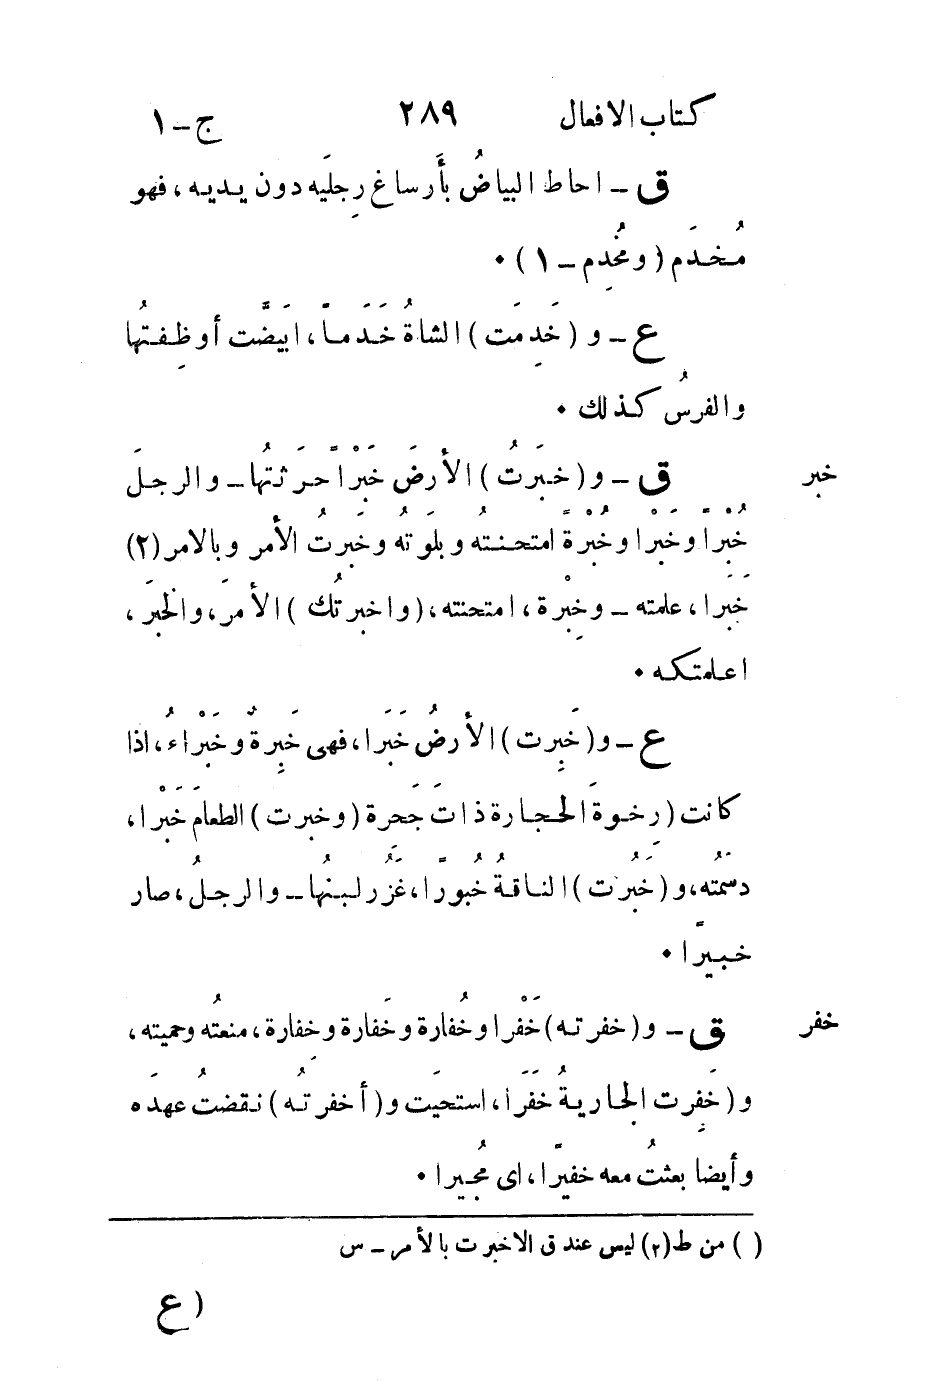 كتاب الافعال ٢٨٩ ج – ١
ق – احاط البياضُ بأَرساغ رِجلَيه دون يديه، فهو
مُخدَم (ومُخْدِم – ١) •
ع – و (خَدِمَت) الشاةُ خَدَماً، ابَيضَّت أوظِفتُها
والفرسُ كذلك •
خبر ق – و (خبَرتُ) الأرضَ خَبْرًا حرَثتُها – والرجلَ
خُبْرًا وخَبْرًا وخُبْرَةً امتحنته وبلَوتُه وخبَرتُ الأمر وبالامر (٢)
خَبَرا، علمته – وخِبْرة، امتحنته، (واخبرتُك) الأمرَ، والخبَرَ،
اعلمتكه •
ع – و (خَبِرت) الأرضُ خَبَرا، فهى خَبِرةٌ وخَبْراءُ، اذا
كانت (رِخوةَ الحجارة ذاتَ جَحِرة (وخبرت) الطعامَ خَبْرا،
دسَمتُه، و (خَبُرَت) الناقةُ خُبورًا، غزُر لبنُها – والرجلُ، صار
خبيرًا •
خفر ق – و (خفرته) خَفْرا وخُفارة وخَفارة وخِفارة، منعتُه وحميته،
و (خَفِرت الجاريةُ خَفَرَا، استحيَت و (أخفرتُه) نقضتُ عهدَه
وأيضا بعثتُ معه خفيرًا، اى مُجيرا •
( ) من ط (٢) ليس عند ق الاخبرت بالأمر – س
( ع